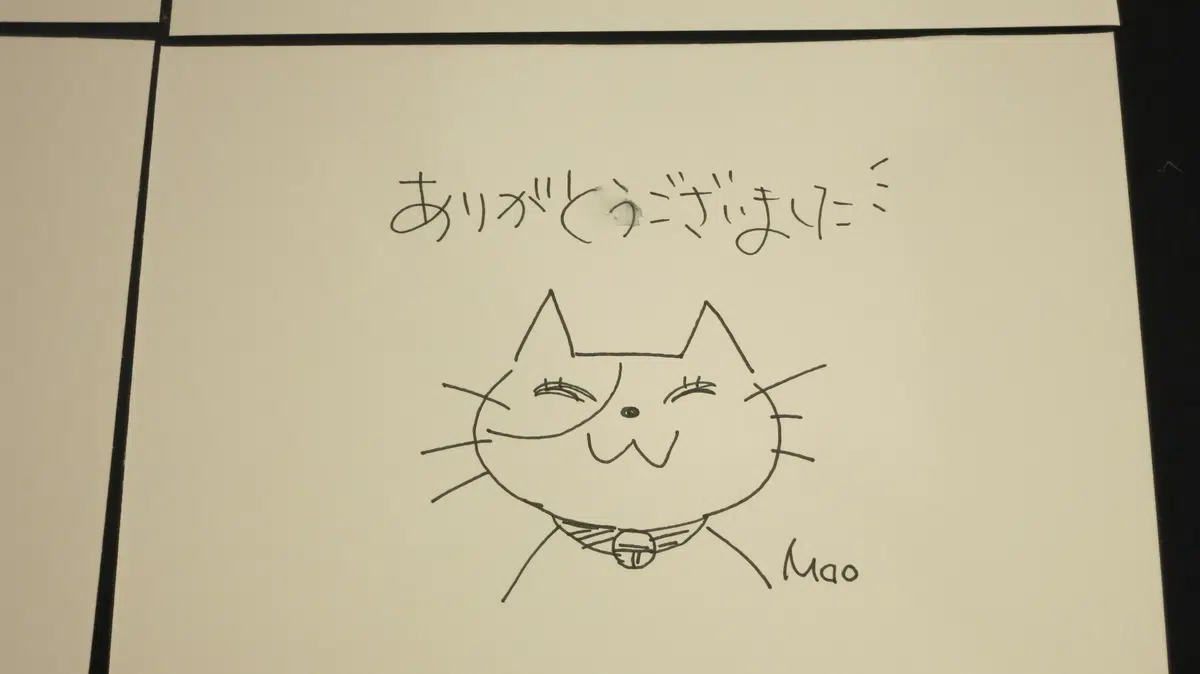 ありがとうございました
Mao